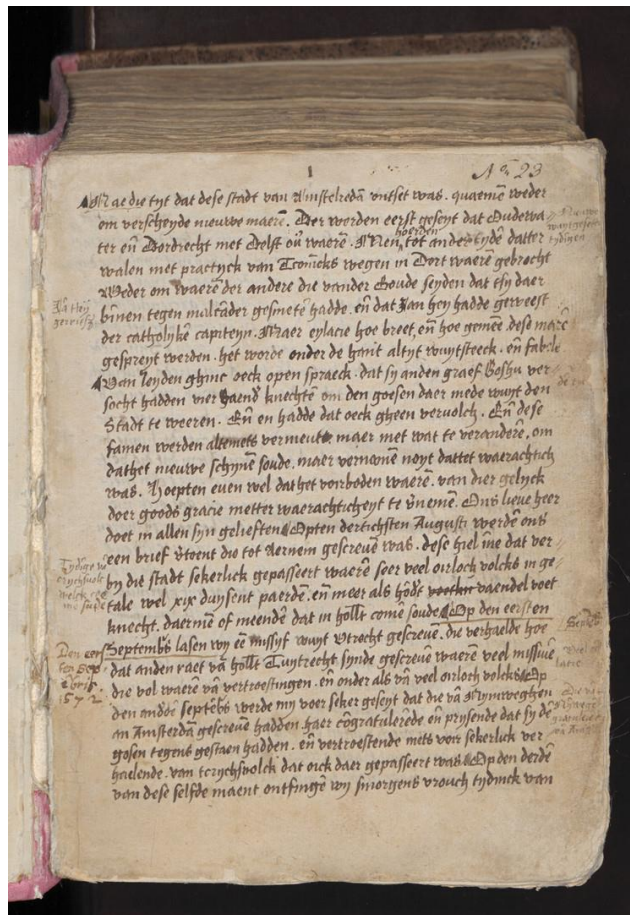 1
No 23
Nae die tyt dat dese stadt van Amstelredā ontset was. quaemē weder
om verscheyde nieuwe maerē. Der worden eerst geseyt dat Ouderwa
ter eñ Dordrecht met Delft oū waerē. Men hoerden tot ander tydē datter
walen met practyck van Tconicks wegen in Dort waerē gebrocht
Weder om waerē der andere die vander Goude seyden dat tsy daer
binen tegen malcāder gesmetē hadde. eñ dat Jan hey hadde geweest
der catholykē capiteyn. Maer eylacie hoe breet, eñ hoe gemeē dese marē
gespreyt werden. het worde onder de hant altyt wuytsteeck. eñ fabele
Van Leyden ghinc oeck open spraeck. dat sy anden graef Boshu ver
socht hadden vier vaend knechtē om den goesen daer mede wuyt den
Stadt te weeren. Eñ en hadde dat oeck gheen vervolch. Eñ dese
famen werden altemets vermeut maer met wat te veranderē, om
dathet nieuwe schynē soude. maer vernomē noyt dattet waerachtich
was. Hoepten even wel dathet voirboden waerē. van dier gelyck
doer goods gracie metter waerachticheyt te vnemē. Ons lieve heer
doet in allen syn gelieften Opten dertichsten Augusti werdē ons
een brief vtoent die tot Aernem gescreuē was. dese hiel īne dat ver
by die stadt sekerlick gepasseert waerē seer veel oirloch volcks in ge
tale wel xix duysent paerdē. eñ meer als hōdt vaendel voet
knecht. daermē of meendē dat in hollt comē soudē Op den eersten
Septembs lasen wy eē missyf wuyt Vtrecht gescreuē. die verhaelde hoe
dat anden raet vā hollt Tuytrecht synde gescreuē waerē veel missiuē
die vol waerē vā vertroestingen. eñ onder als vā veel oirloch volcks Op
den andē septēbs werde my voer seker geseyt dat die vā Nymweghen
an Amsterdā gescreuē hadden. haer cōgratulerēde eñ prysende dat sy dē
gosen tegens gestaen hadden. eñ vertroestende mets voir sekerlick ver
haelende. van tcrychsvolck dat oick daer gepasseert was Op den derdē
van dese selfde maent ontfingē wy smorgens vrouch tydinck van
Den eers
ten Sep
tēbris.
1572